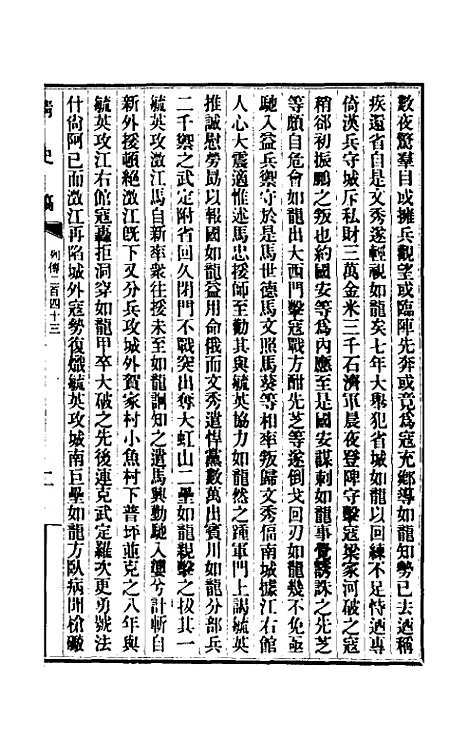 數夜驚羣目或擁兵觀望或臨陣先奔或竟爲寇充鄉導如龍知勢已去迺稱
疾還省自是文秀遂輕視如龍矣七年大舉犯省城如龍以回練不足恃迺專
倚漢兵守城斥私財三萬金米三千石濟軍晨夜登陴守擊寇梁家河破之寇
稍郤初振鵬之叛也約國安等爲內應至是國安謀刺如龍事覺誘誅之先芝
等頗自危會如龍出大西門擊寇戰方酣先芝等遂倒戈回刃如龍幾不免亟
馳入益兵禦守於是馬世德馬文照馬葵等相率叛歸文秀偪南城據江右館
人心大震適惟述馬忠援師至勸其與毓英協力如龍然之踵軍門上謁毓英
推誠慰勞勗以報國如龍益用命俄而文秀遣悍黨數萬出賓川如龍分部兵
二千禦之武定附省回久閉門不戰突出奪大虹山二壘如龍親擊之拔其一
毓英攻澂江馬自新率衆往援未至如龍詗知之遣馬興勤馳入澂兮計斬自
新外援頓絕澂江旣下又分兵攻城外賀家村小魚村下普坏並克之八年與
毓英攻江右館寇轟拒洞穿如龍甲卒大破之先後連克武定羅次更勇號法
什尙阿已而澂江再陷城外寇勢復熾毓英攻城南巨壘如龍方臥病聞槍礮
清史稿
列傳二百四十三